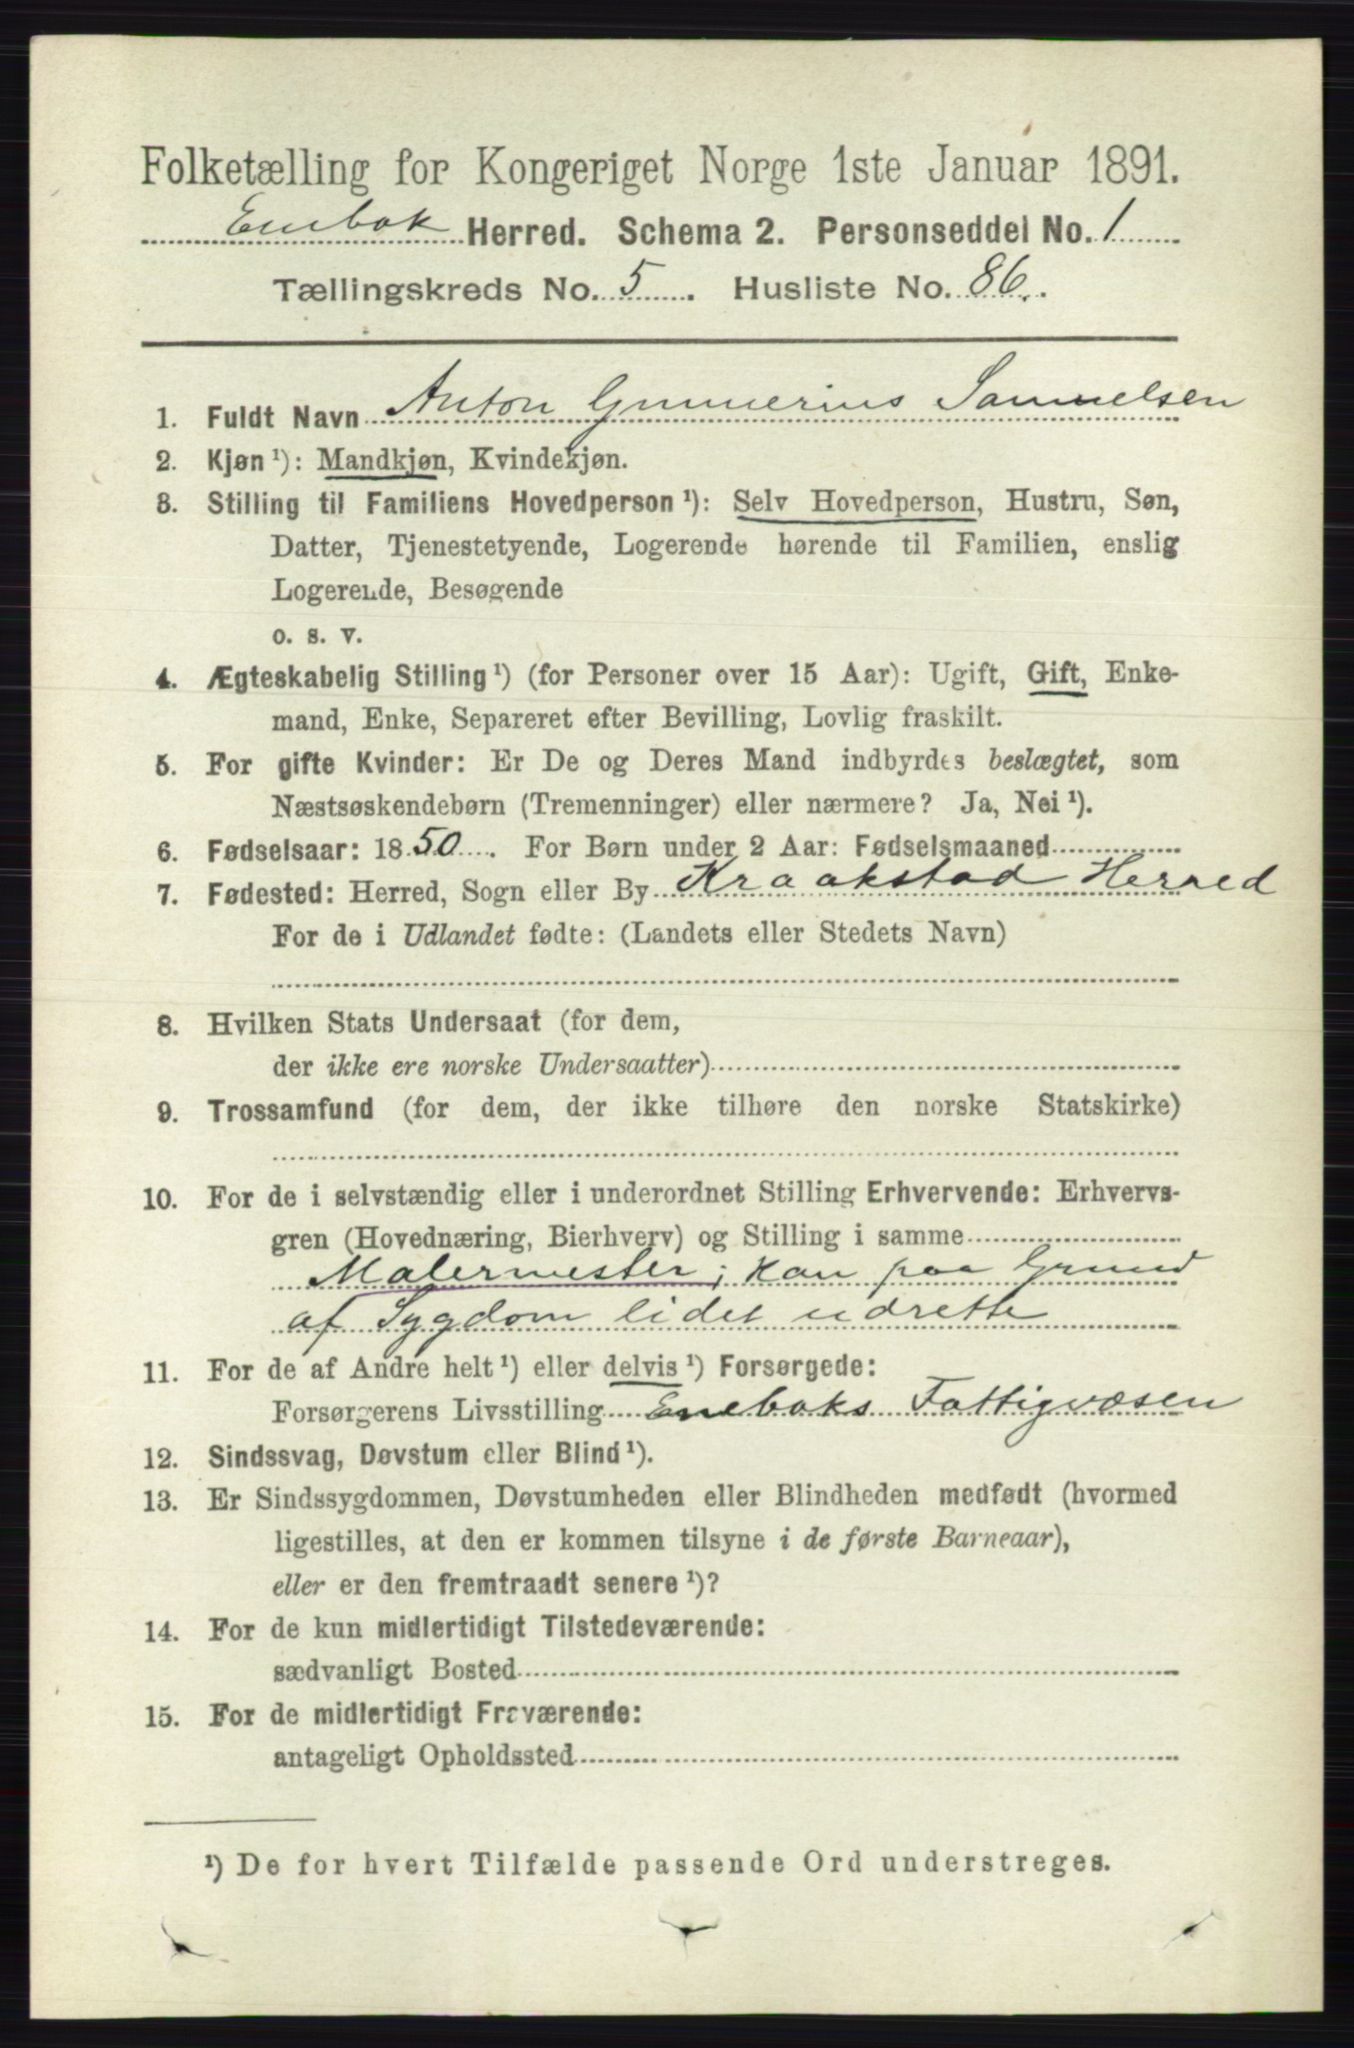 Folketælling for Kongeriget Norge 1ste Januar 1891.
Enebak Herred. Schema 2. Personseddel No. 1
Tællingskreds No. 5. Husliste No. 86.
1. Fuldt Navn Anton Gunnerius Samuelsen
2. Kjøn ¹): Mandkjøn, Kvindekjøn.
3. Stilling til Familiens Hovedperson ¹): Selv Hovedperson, Hustru, Søn,
Datter, Tjenestetyende, Logerende hørende til Familien, enslig
Logerende, Besøgende
o. s. v.
4. Ægteskabelig Stilling ¹) (for Personer over 15 Aar): Ugift, Gift, Enke-
mand, Enke, Separeret efter Bevilling, Lovlig fraskilt.
5. For gifte Kvinder: Er De og Deres Mand indbyrdes beslægtet, som
Næstsøskendebørn (Tremenninger) eller nærmere? Ja, Nei ¹).
6. Fødselsaar: 1850. For Børn under 2 Aar: Fødselsmaaned
7. Fødested: Herred, Sogn eller By Kraakstad Herred
For de i Udlandet fødte: (Landets eller Stedets Navn)
8. Hvilken Stats Undersaat (for dem,
der ikke ere norske Undersaatter)
9. Trossamfund (for dem, der ikke tilhøre den norske Statskirke)
10. For de i selvstændig eller i underordnet Stilling Erhvervende: Erhvervs-
gren (Hovednæring, Bierhverv) og Stilling i samme
Malermester; kan paa Grund
af Sygdom lidet udrette
11. For de af Andre helt ¹) eller delvis ¹) Forsørgede:
Forsørgerens Livsstilling Enebaks Fattigvæsen
12. Sindssvag, Døvstum eller Blind ¹).
13. Er Sindssygdommen, Døvstumheden eller Blindheden medfødt (hvormed
ligestilles, at den er kommen tilsyne i de første Barneaar),
eller er den fremtraadt senere ¹)?
14. For de kun midlertidigt Tilstedeværende:
sædvanligt Bosted
15. For de midlertidigt Fraværende:
antageligt Opholdssted
¹) De for hvert Tilfælde passende Ord understreges.